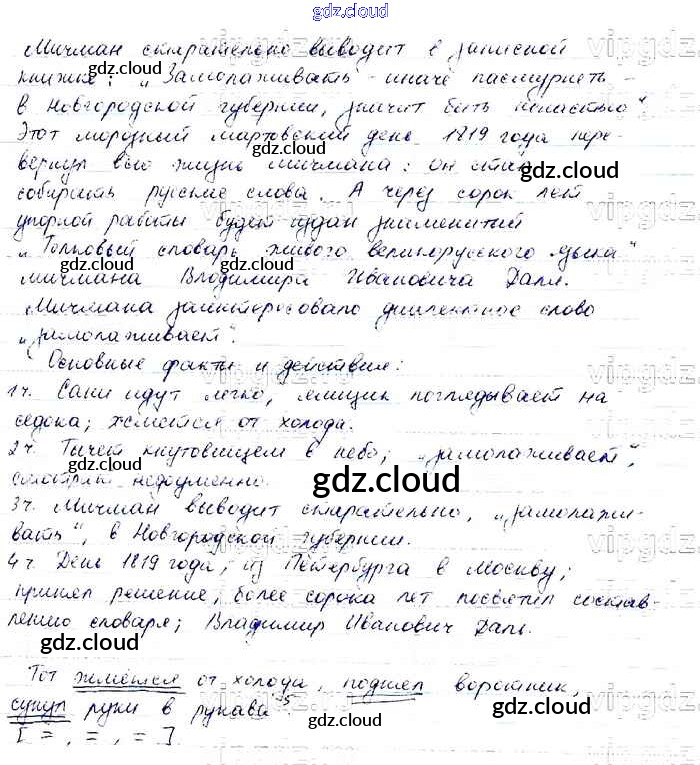 gdz.cloud
Мичман старательно выводит в записной
книжке: „Замолаживать - иначе пасмурнеть -
в Новгородской губернии, значит быть ненастью"
Этот морозный мартовский день 1819 года пере-
вернул всю жизнь мичмана: он стал
собирать русские слова. А через сорок лет
упорной работы будет издан знаменитый
„Толковый словарь живого великорусского языка"
мичмана Владимира Ивановича Даля.
Мичмана заинтересовало диалектное слово
„замолаживает".
Основные факты и действия:
1ч. Сани идут легко, ямщик поглядывает на
седока; жмется от холода.
2ч. Тычет кнутовищем в небо; „замолаживает",
смотрит недоуменно.
3ч. Мичман выводит старательно, „замолажи-
вать", в Новгородской губернии.
4ч. День 1819 года; из Петербурга в Москву;
принял решение, более сорока лет посвятил состав-
лению словаря; Владимир Иванович Даль.
Тот жмется от холода, поднял воротник,
сунул руки в рукава
[ = , = , = ].
gdz.cloud
gdz.cloud
gdz.cloud
gdz.cloud
gdz.cloud
gdz.cloud
gdz.cloud
gdz.cloud
gdz.cloud
gdz.cloud
gdz.cloud
gdz.cloud
vipgdz
vipgdz
vipgdz
vipgdz
vipgdz
vipgdz
vipgdz
vipgdz